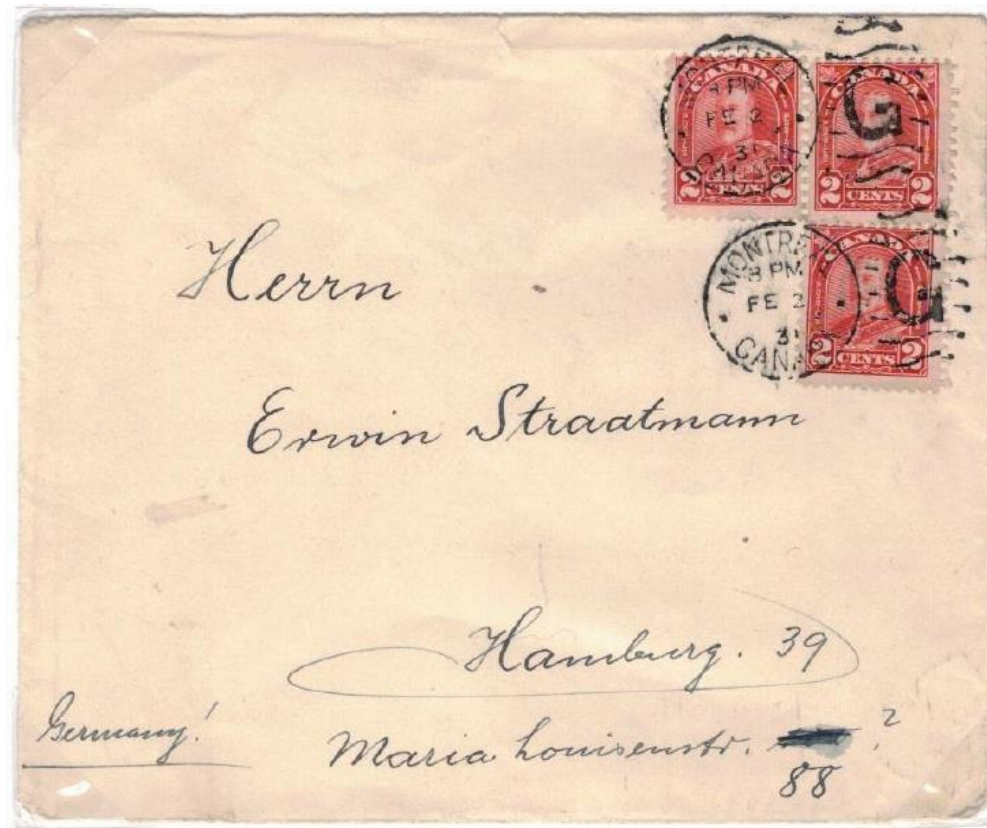 MONTREAL
8 PM
FE 2
31
CANADA
CANADA
2 CENTS 2
CANADA
G
2 CENTS 2
MONTREAL
8 PM
FE 2
31
CANADA
CANADA
G
2 CENTS 2
Herrn
Erwin Straatmann
Hamburg. 39
Germany!
Maria Louisenstr. ?
88